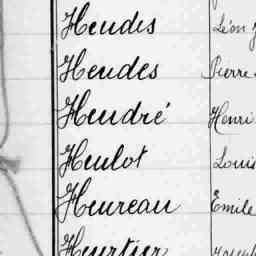 Heudes Léon
Heudes Pierre
Heudré Henri
Heulot Louis
Heureau Emile
Heurtier Joseph